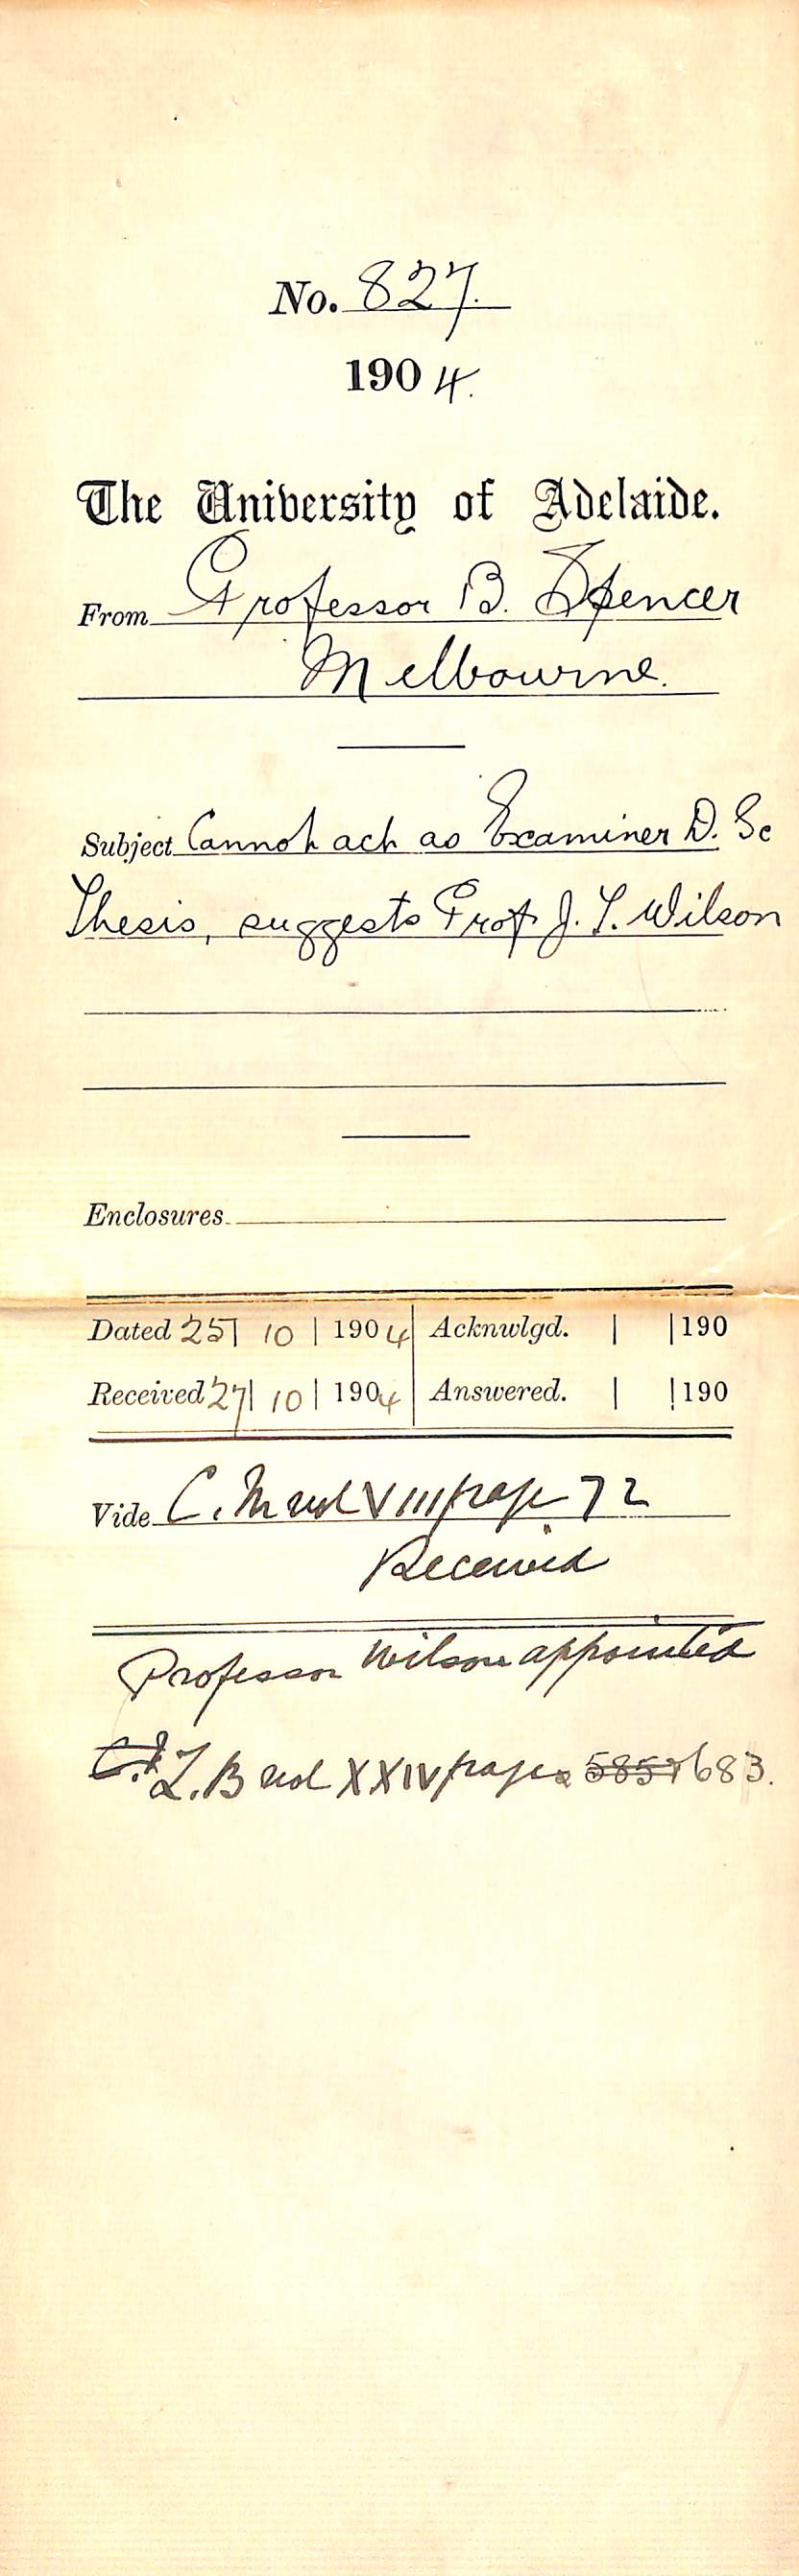 No. 827.
1904.
The University of Adelaide.
From Professor B. Spencer
Melbourne.
Subject Cannot act as Examiner D. Sc
Thesis, suggests Prof J. T. Wilson
Enclosures
Dated 25 | 10 | 1904 Acknwlgd. | | 190
Received 27 | 10 | 1904 Answered. | | 190
Vide C. M vol VIII page 72
Received
Professor Wilson appointed
L.B vol XXIV pages 683.